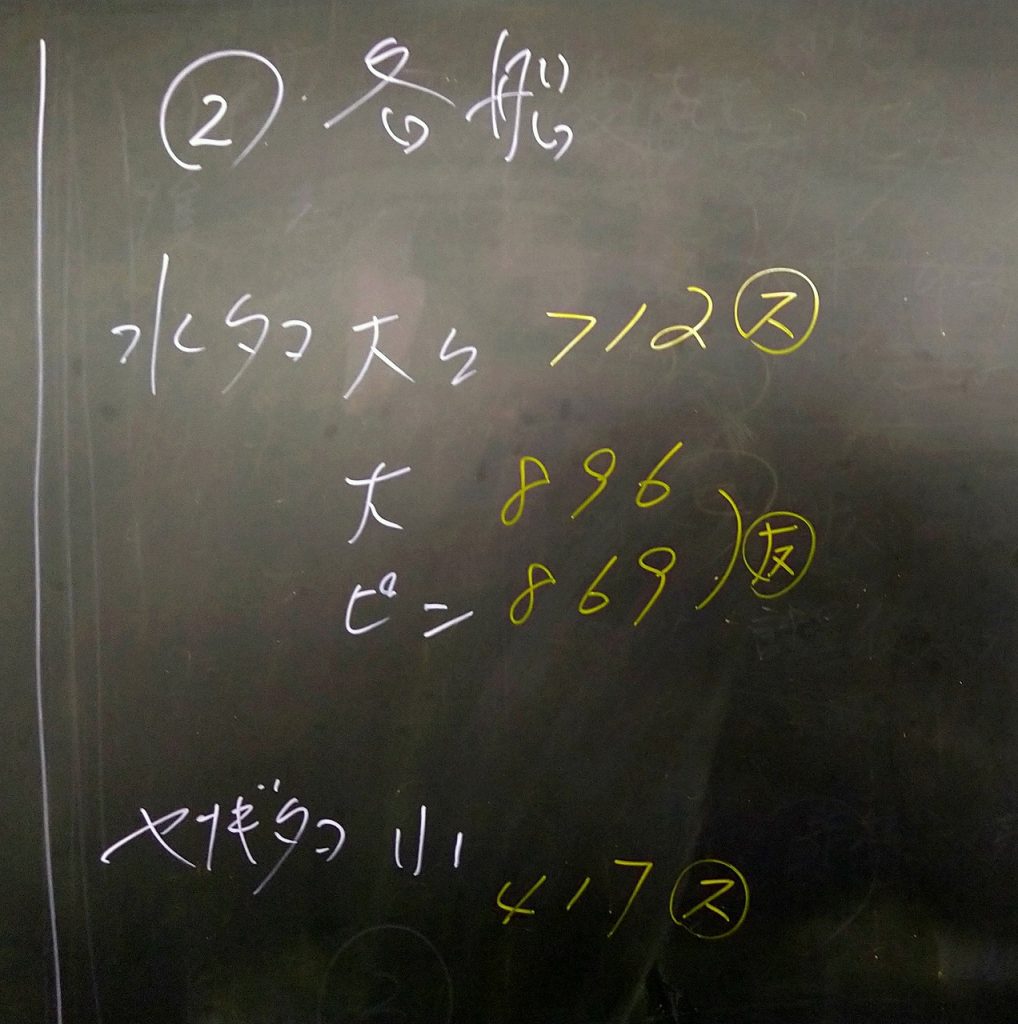 ② 各船
水タコ 大々 712 ㋜
大 896
ピン 869 ) 友
ヤナギタコ 小
417 ㋜